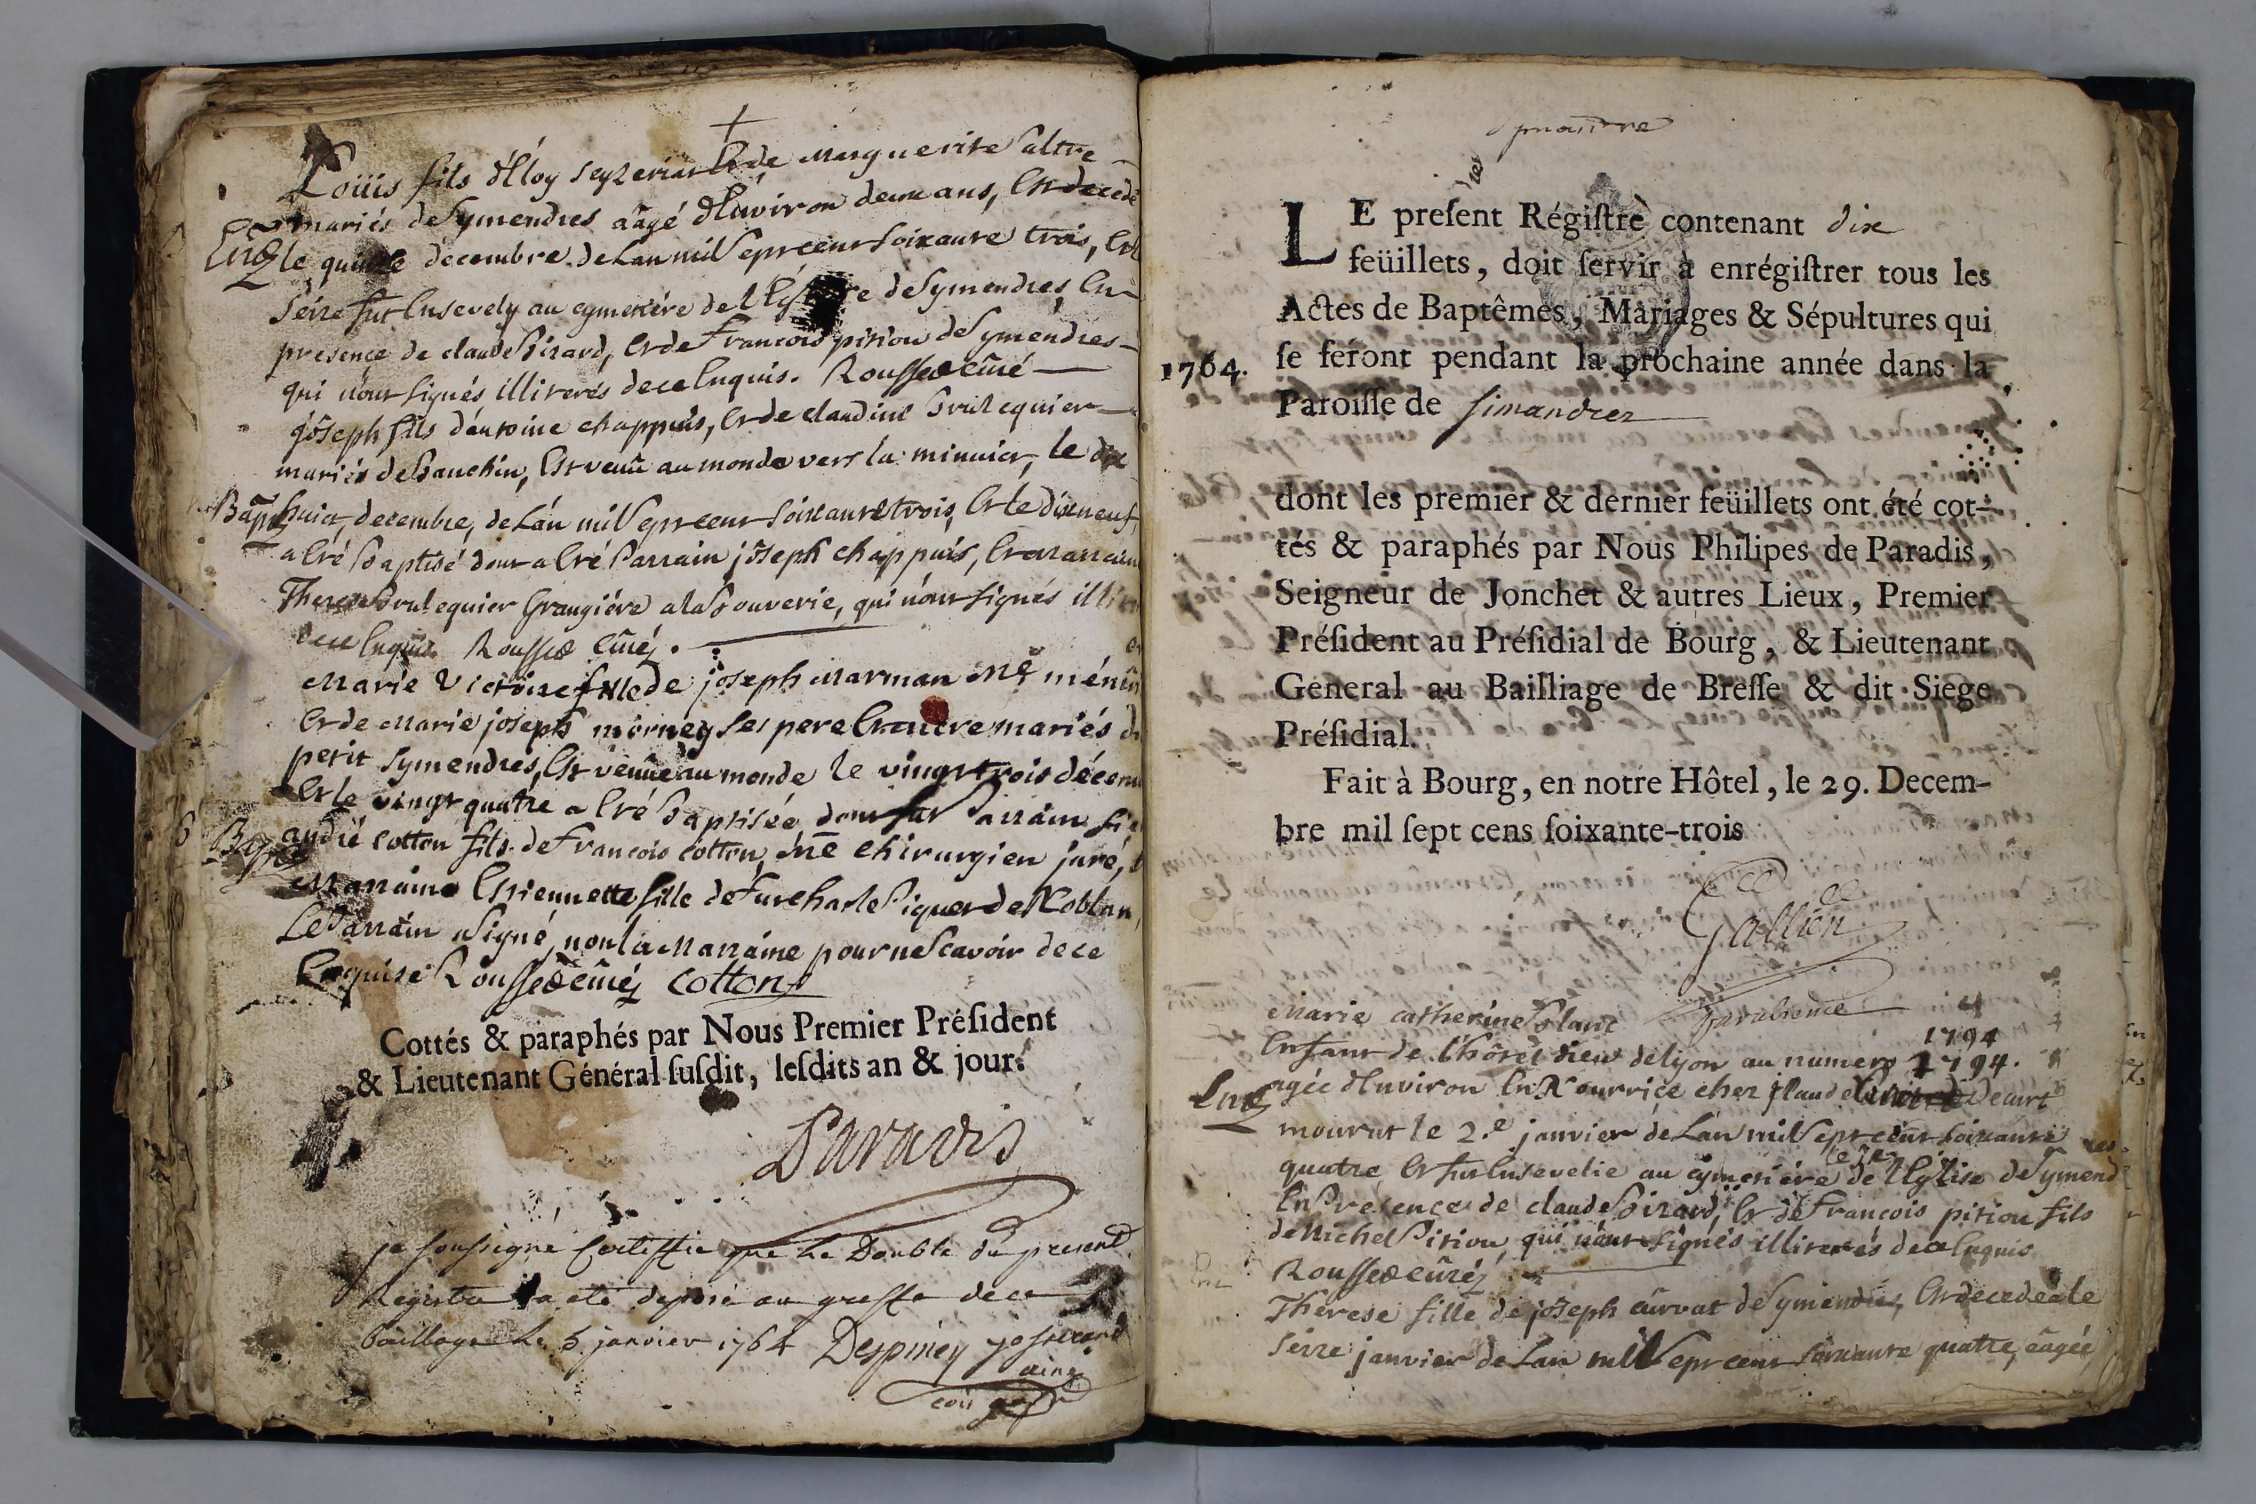 Loüis fils d'Eloy seyzeriat Et de Marguerite saltre
mariés de Symendres aagé d'Environ deux ans, Est decedé
Ent le quinze decembre de Lan mil sept cent soixante trois, Et le
seize fut Ensevely au cymetiére de l'Eglise de Symendres En
presence de claude Birard, Et de François pition de Symendres
qui n'ont signés illiterés de ce Enquis. Roussed Curé
joseph fils d'antoine chappuis, Et de claudine brulequier
mariés de banchin, Est venû au monde vers la minuict, le dix
Bap huict decembre, de Lan mil sept cent soixante trois, Et le dix neuf
a Eté Baptisé dont a Eté Parrain joseph chappuis, Et Marraine
Therese brulequier Grangiére a la bouverie, qui n'ont signés
de ce Enquis Roussed Curé.
Marie Victoire fille de joseph Marman Me
Et de Marie joseph morney ses pere Et mere mariés de
petit Symendres, Est venûe au monde le vingt trois décem
Et le vingt quatre a Eté Baptisée dont fut Parrain
andré Cotton fils de François Cotton, Me chirurgien juré,
Marraine Etiennette fille de fut charle Piquet de
Le Parrain a signé, non la Marraine pour ne scavoir de ce
Enquise Roussed Curé Cotton
Cottés & paraphés par Nous Premier Président
& Lieutenant Général susdit, lesdits an & jour.
Paradis
je soussigné Certiffie que le Double du present
Registre a eté deposé au greffe de ce
bailliage Le 5 janvier 1764 Despiney
LE present Régistre contenant dix
feüillets, doit servir à enrégistrer tous les
Actes de Baptêmes, Mariages & Sépultures qui
1764. se feront pendant la prochaine année dans la
Paroisse de simandres
dont les premier & dernier feüillets ont été cot-
tés & paraphés par Nous Philipes de Paradis,
Seigneur de Jonchet & autres Lieux, Premier
Président au Présidial de Bourg, & Lieutenant
General au Bailliage de Bresse & dit Siege
Présidial.
Fait à Bourg, en notre Hôtel, le 29. Decem-
bre mil sept cens soixante-trois
Marie catherine Blanc
1794
Enfant de l'hôtel Dieu de lyon au numero 1794.
Ent agée d'Environ En Nourrice chez
mourut le 2.e janvier de Lan mil sept cent soixante
quatre Et fut Ensevelie au cymetiére de l'Eglise de Symend
En Presence de claude Birard, Et de François pition fils
de Michel Pition, qui n'ont signés illiterés de ce Enquis
Roussed Curé
Therese fille de joseph curvat de Symendres, Est decedeé le
seize janvier de Lan mil sept cent soixante quatre, aagée